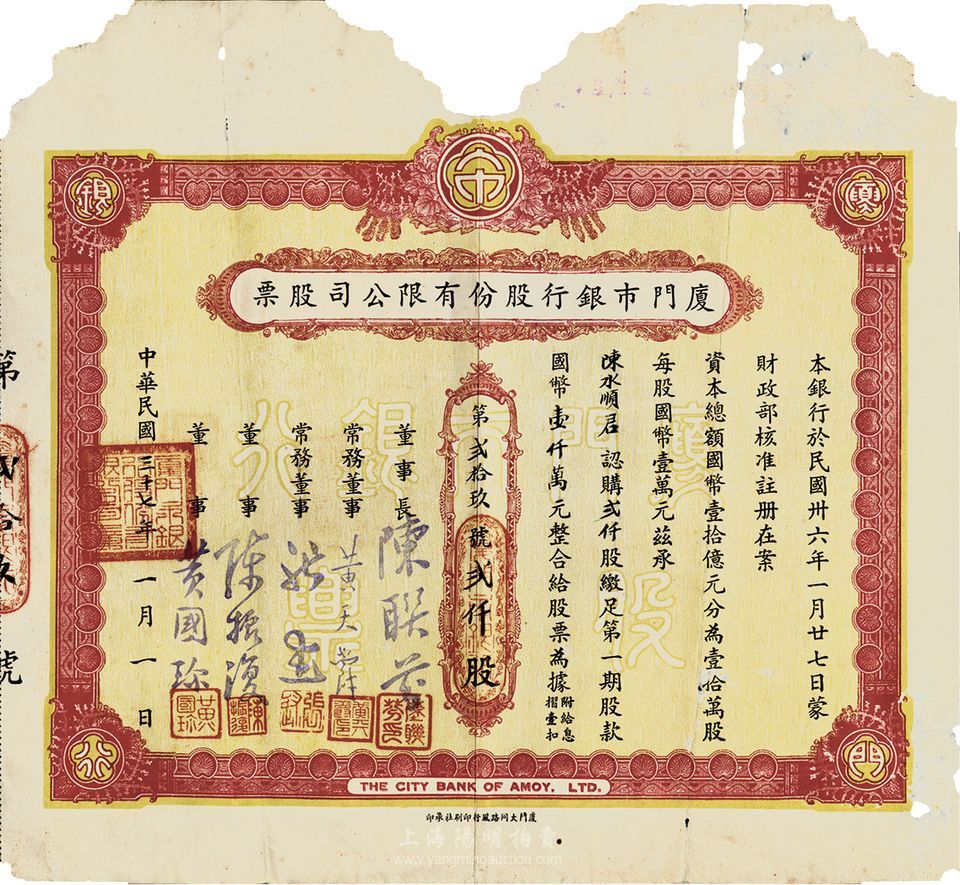 廈
門
市
銀
行
廈門市銀行股份有限公司股票
本銀行於民國卅六年一月廿七日蒙
財政部核准註册在案
資本總額國幣壹拾億元分為壹拾萬股
每股國幣壹萬元茲承
陳水順君認購弍仟股繳足第一期股款
國幣壹仟萬元整合給股票為據附給息摺壹扣
第弍拾玖號弍仟股
董事長
常務董事
常務董事
董事
董事
陳聯芬
黃天爵
陳振濱
黃國珍
中華民國三十七年一月一日
第
號
廈門市銀行
股
THE CITY BANK OF AMOY, LTD.
廈門大同路風行印刷社承印
上海陽明拍賣
www.yangmingauction.com